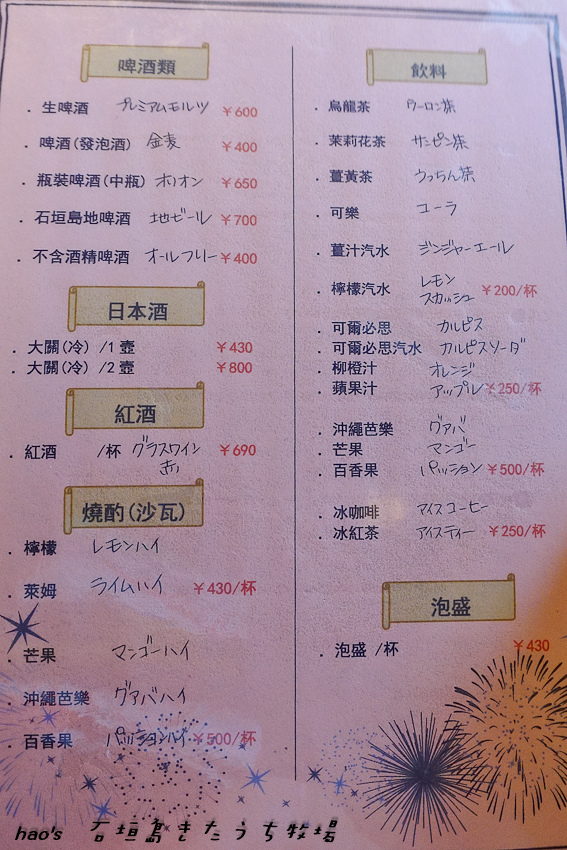 啤酒類
．生啤酒 プレミアムモルツ ￥600
．啤酒(發泡酒) 金麦 ￥400
．瓶裝啤酒(中瓶) オリオン ￥650
．石垣島地啤酒 地ビール ￥700
．不含酒精啤酒 オールフリー ￥400
日本酒
．大關(冷) /1 壺 ￥430
．大關(冷) /2 壺 ￥800
紅酒
．紅酒 /杯 グラスワイン ￥690
赤
燒酌(沙瓦)
．檸檬 レモンハイ
．萊姆 ライムハイ ￥430/杯
．芒果 マンゴーハイ
．沖繩芭樂 グァバハイ
．百香果 パッションハイ ￥500/杯
飲料
．烏龍茶 ウーロン茶
．茉莉花茶 サンピン茶
．薑黃茶 うっちん茶
．可樂 コーラ
．薑汁汽水 ジンジャーエール
．檸檬汽水 レモン
スカッシュ ￥200/杯
．可爾必思 カルピス
．可爾必思汽水 カルピスソーダ
．柳橙汁 オレンジ
．蘋果汁 アップル ￥250/杯
．沖繩芭樂 グァバ
．芒果 マンゴー
．百香果 パッション ￥500/杯
．冰咖啡 アイスコーヒー
．冰紅茶 アイスティー ￥250/杯
泡盛
．泡盛 /杯 ￥430
hao's 石垣島きたうち牧場